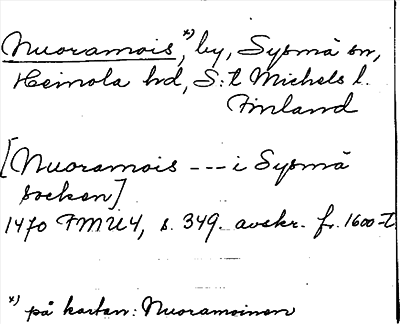 Nuoramois,*) by, Sysmä sn,
Heinola hd, S:t Michels l.
Finland
[Nuoramois --- i Sysmä
socken]
1470 FMU4, s. 349. avskr. fr. 1600-t.
*) på kartan: Nuoramoinen